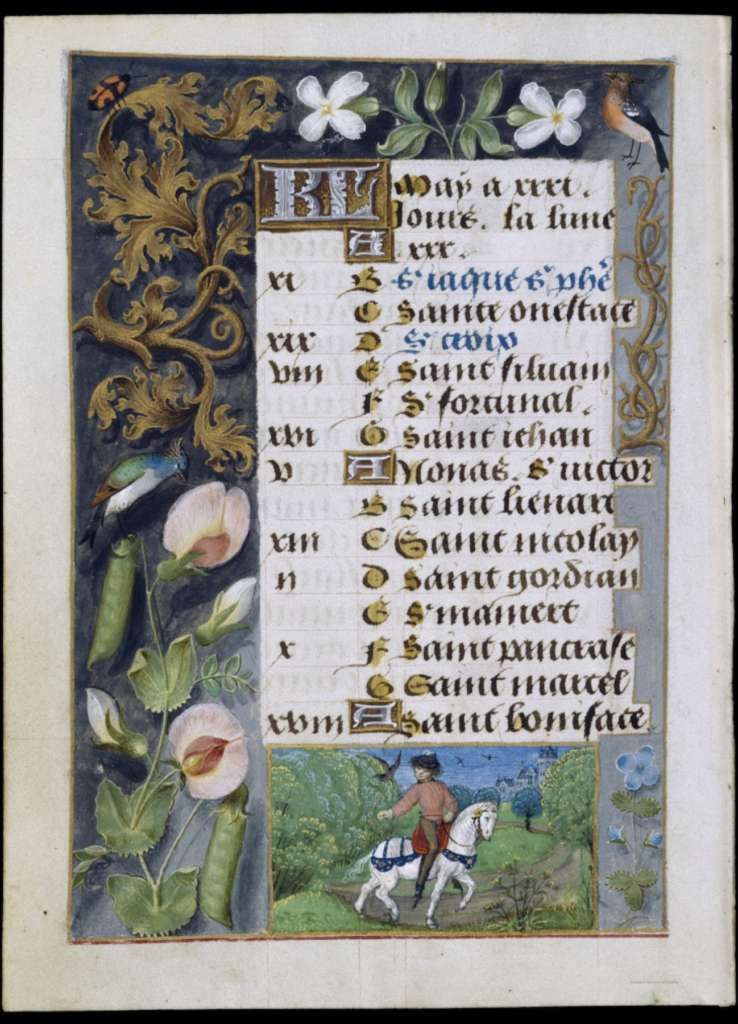 KL May a xxxi.
Jours. la lune
A xxx.
xi B s' iaque s' phe
C Sainte onestace
xix D s' croix
viii E Saint siluain
F S' fortunal.
xvi G Saint iehan
v A Nonas. S' victor
B Saint lienart
xiii C Saint nicolay
ii D Saint gordian
E S' mamert
x F Saint pancrase
G Saint marcel
xviii A Saint boniface